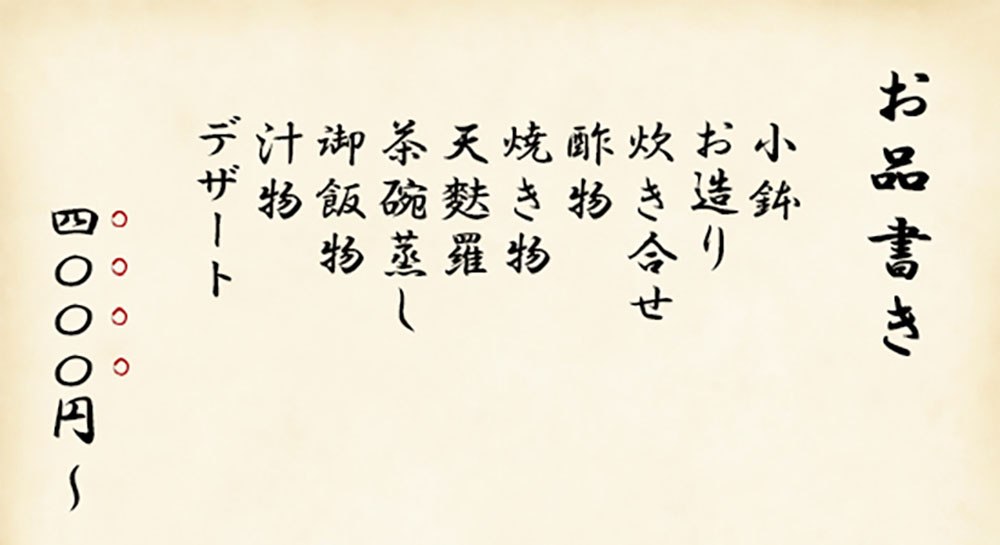 お品書き
小鉢
お造り
炊き合せ
酢物
焼き物
天麩羅
茶碗蒸し
御飯物
汁物
デザート
四〇〇〇円~